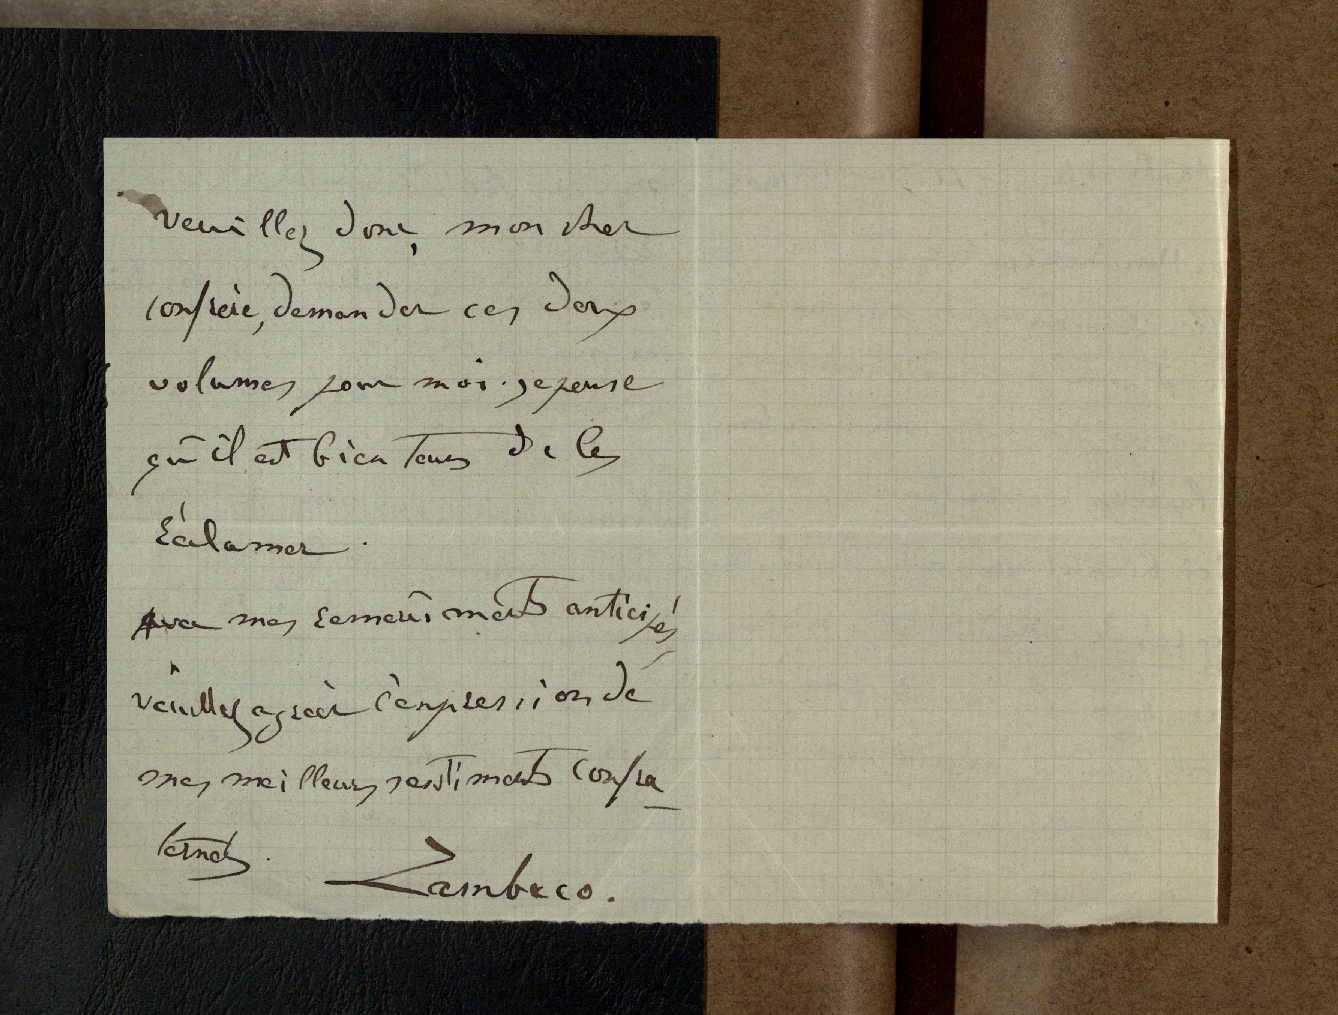 Veuillez donc, mon cher
confrère, demander ces deux
volumes pour moi. je pense
qu'il est bien tems de les
réclamer.
mes remerciments anticipés
veuillez agréer l'expression de
mes meilleurs sentiments confra
ternels.
Zambaco.